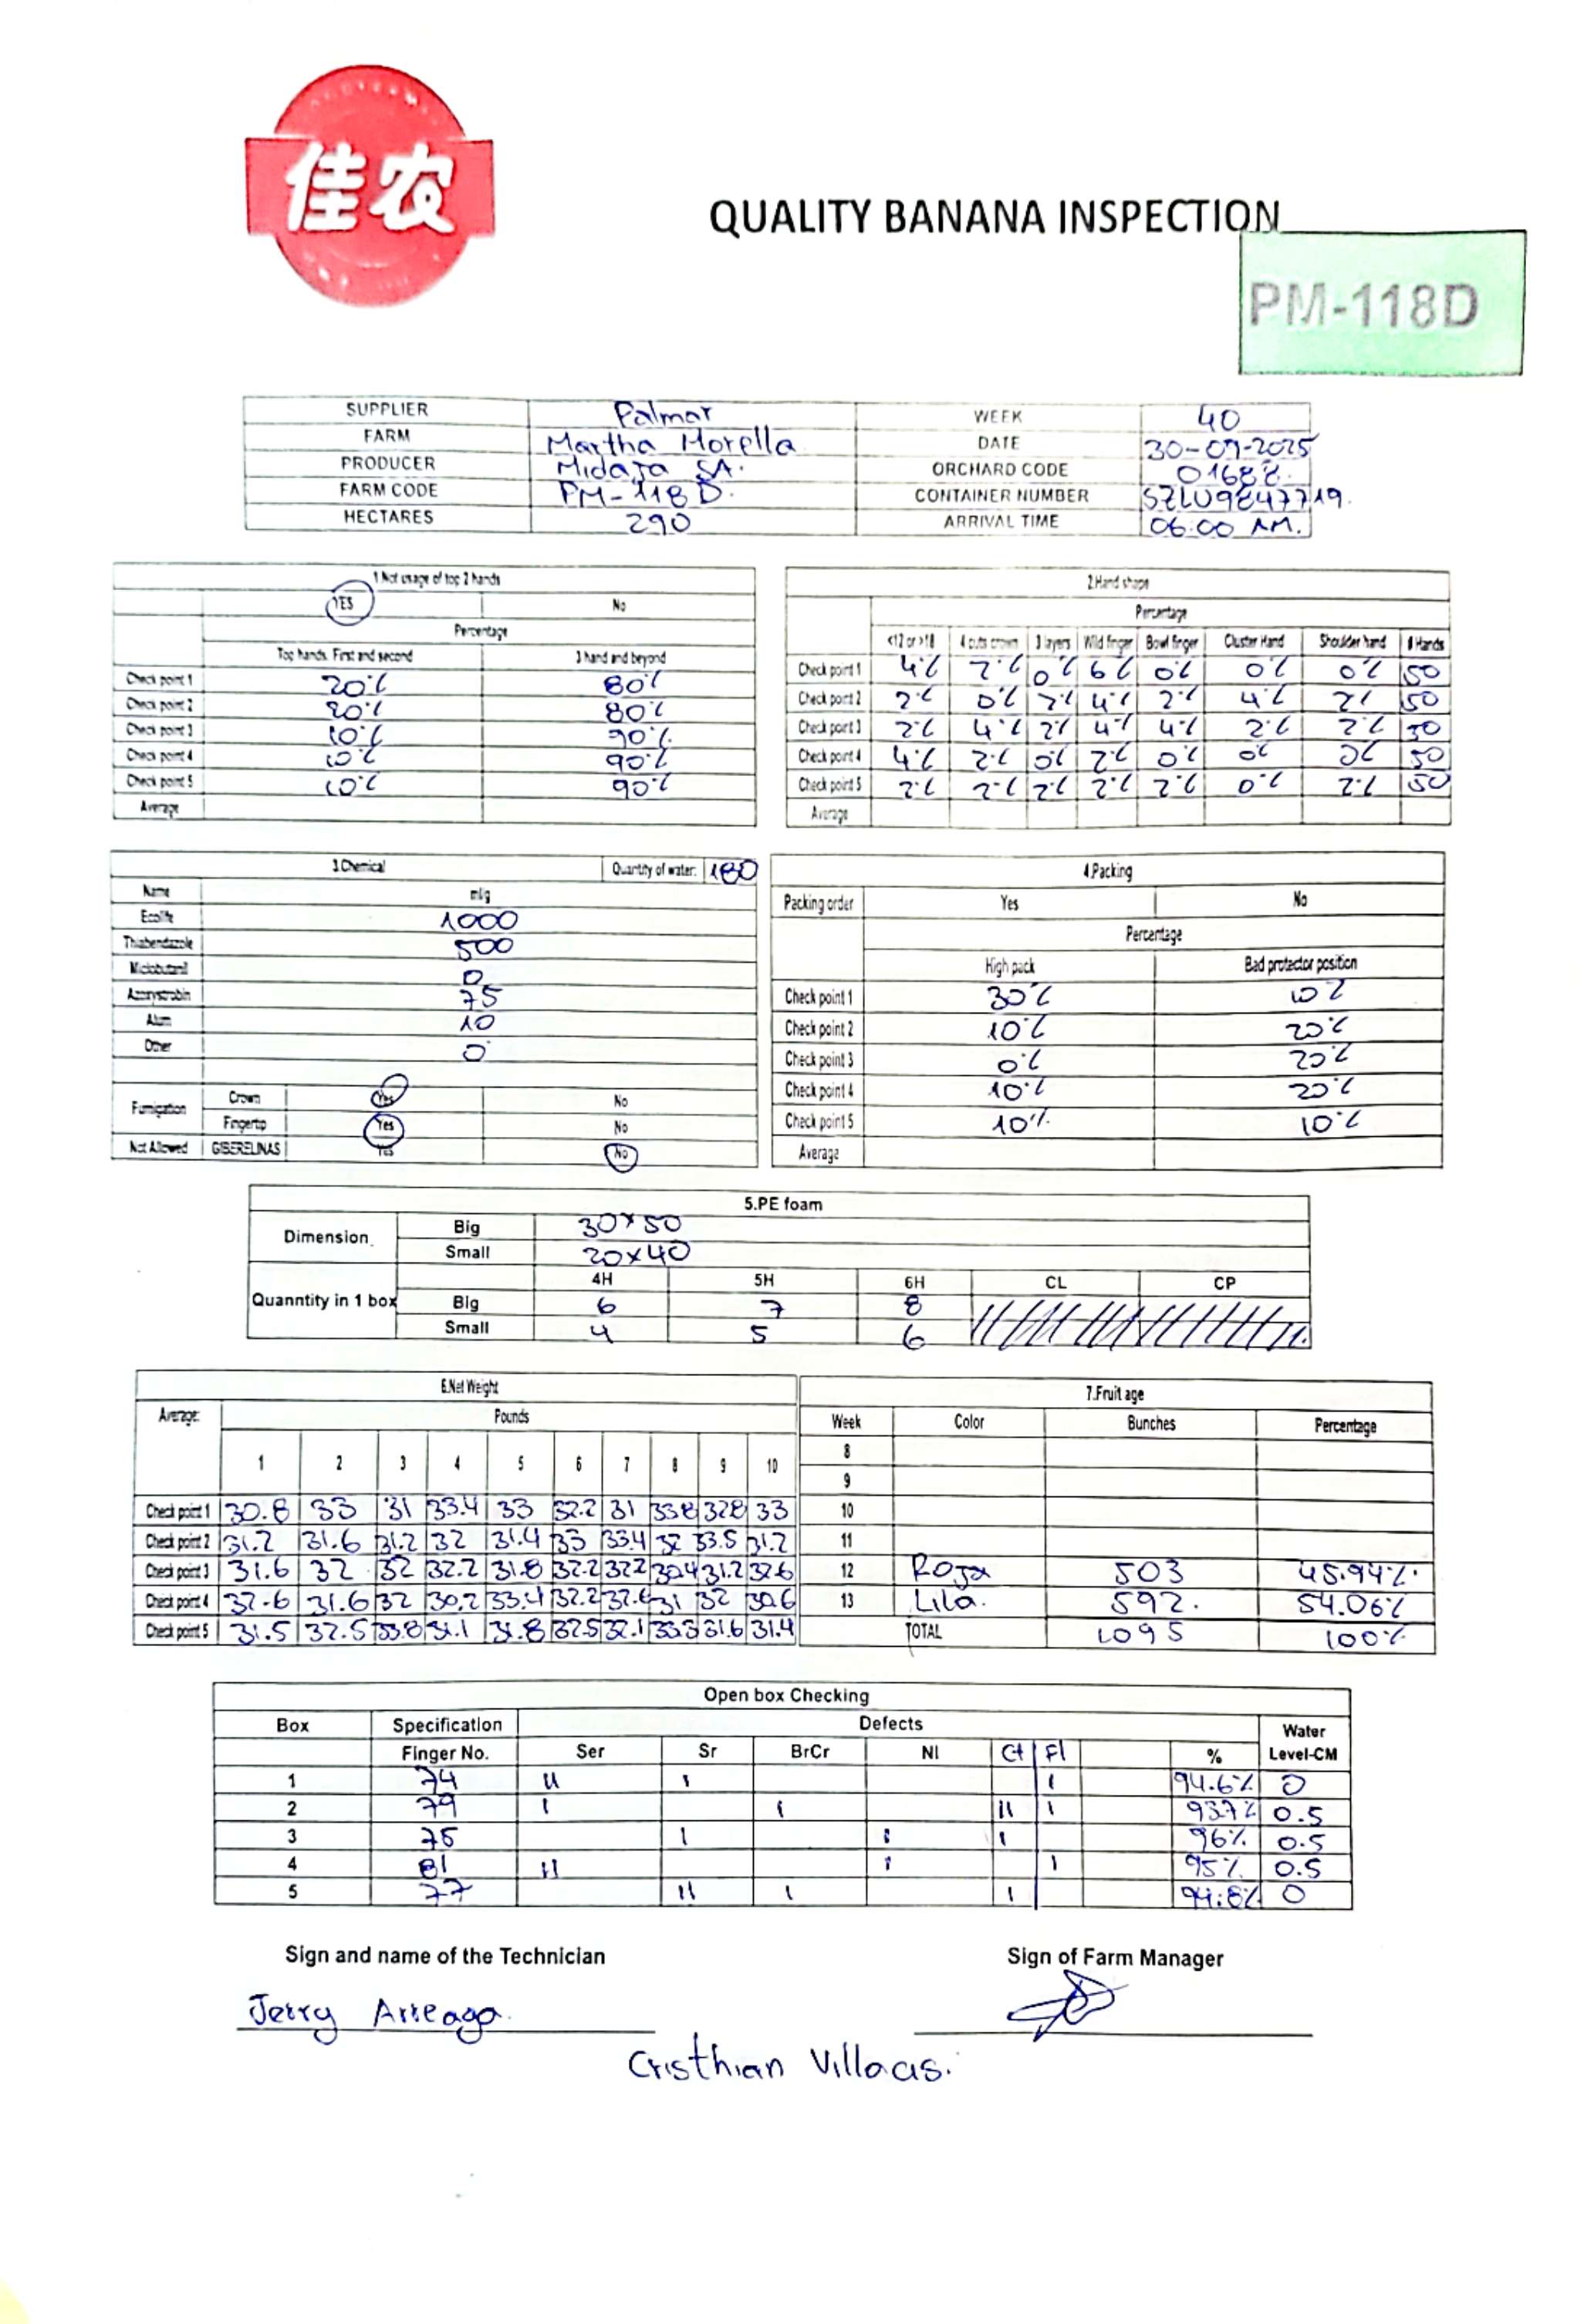 佳农
QUALITY BANANA INSPECTION
PM-118D
SUPPLIER Palmar WEEK 40
FARM Martha Morella DATE 30-09-2025
PRODUCER Midaja SA. ORCHARD CODE
FARM CODE PM-118D. CONTAINER NUMBER SZLU9847719.
HECTARES 290 ARRIVAL TIME 06:00 AM.
1.Not usage of top 2 hands
YES No
Percentage
Top hands. First and second 3 hand and beyond
Check point 1 20% 80%
Check point 2 20% 80%
Check point 3 10% 90%
Check point 4 10% 90%
Check point 5 10% 90%
Average
2.Hand shape
Percentage
<12 or >18 4 cuts crown 3 layers Wild finger Bowl finger Cluster Hand Shoulder hand # Hands
Check point 1 4% 2% 0% 6% 0% 0% 0% 50
Check point 2 2% 0% 2% 4% 2% 4% 2% 50
Check point 3 2% 4% 2% 4% 4% 2% 2% 50
Check point 4 4% 2% 0% 2% 0% 0% 0% 50
Check point 5 2% 2% 2% 2% 2% 0% 2% 50
Average
3.Chemical Quantity of water: 180
Name ml/g
Ecolife 1000
Thiabendazole 500
Miclobutanil 0
Azoxystrobin 75
Alum 10
Other 0
Fumigation Crown Yes No
Fingertip Yes No
Not Allowed GIBERELINAS Yes No
4.Packing
Packing order Yes No
Percentage
High pack Bad protector position
Check point 1 30% 10%
Check point 2 10% 20%
Check point 3 0% 20%
Check point 4 10% 20%
Check point 5 10% 10%
Average
5.PE foam
Dimension. Big 30x50
Small 20x40
4H 5H 6H CL CP
Quanntity in 1 box Big 6 7 8
Small 4 5 6
6.Net Weight
Average: Pounds
1 2 3 4 5 6 7 8 9 10
Check point 1 30.8 33 31 33.4 33 32.2 31 33.8 32.8 33
Check point 2 31.2 31.6 31.2 32 31.4 33 33.4 32 33.5 31.2
Check point 3 31.6 32 32 32.2 31.8 32.2 32.2 30.4 31.2 32.6
Check point 4 32.6 31.6 32 30.2 33.4 32.2 32.6 31 32 30.6
Check point 5 31.5 32.5 33.8 31.1 31.8 32.5 32.1 33.3 31.6 31.4
7.Fruit age
Week Color Bunches Percentage
8
9
10
11
12 Roja 503 45.94%
13 Lila. 592. 54.06%
TOTAL 1095 100%
Open box Checking
Box Specification Defects Water
Finger No. Ser Sr BrCr NI Ct Fl % Level-CM
1 74 11 1 1 94.6% 0
2 79 1 1 11 1 93.7% 0.5
3 75 1 1 1 96% 0.5
4 81 11 1 1 95% 0.5
5 77 11 1 1 94.8% 0
Sign and name of the Technician Sign of Farm Manager
Jerry Arreaga.
Cristhian Villacis.